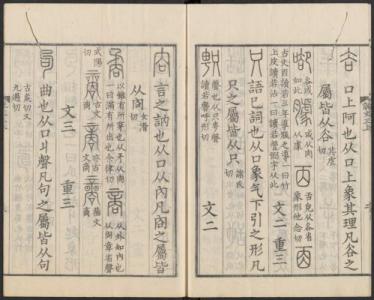 谷 口上阿也从口上象其理凡谷之
屬皆从谷 其虐切
𧮫或如此 臄 或从肉从豦 㐁 舌皃从谷省象形他念切
古文㐁讀若三年導服之導一曰竹上皮讀若沾一曰讀若誓弼字从此 文二 重三
只 語已詞也从口象气下引之形凡
只之屬皆从只 諸氏切
聲也从只甹聲讀若馨呼形切 文二
㕯 言之訥也从口从內凡㕯之屬皆
从㕯 女滑切
矞 以錐有所穿也从矛从㕯一曰滿有所出也余律切 商 从外知內也从㕯章省聲
式陽切 古文商 亦古文商 籀文商
文三 重三
句 曲也从口丩聲凡句之屬皆从句
古矦切又九遇切